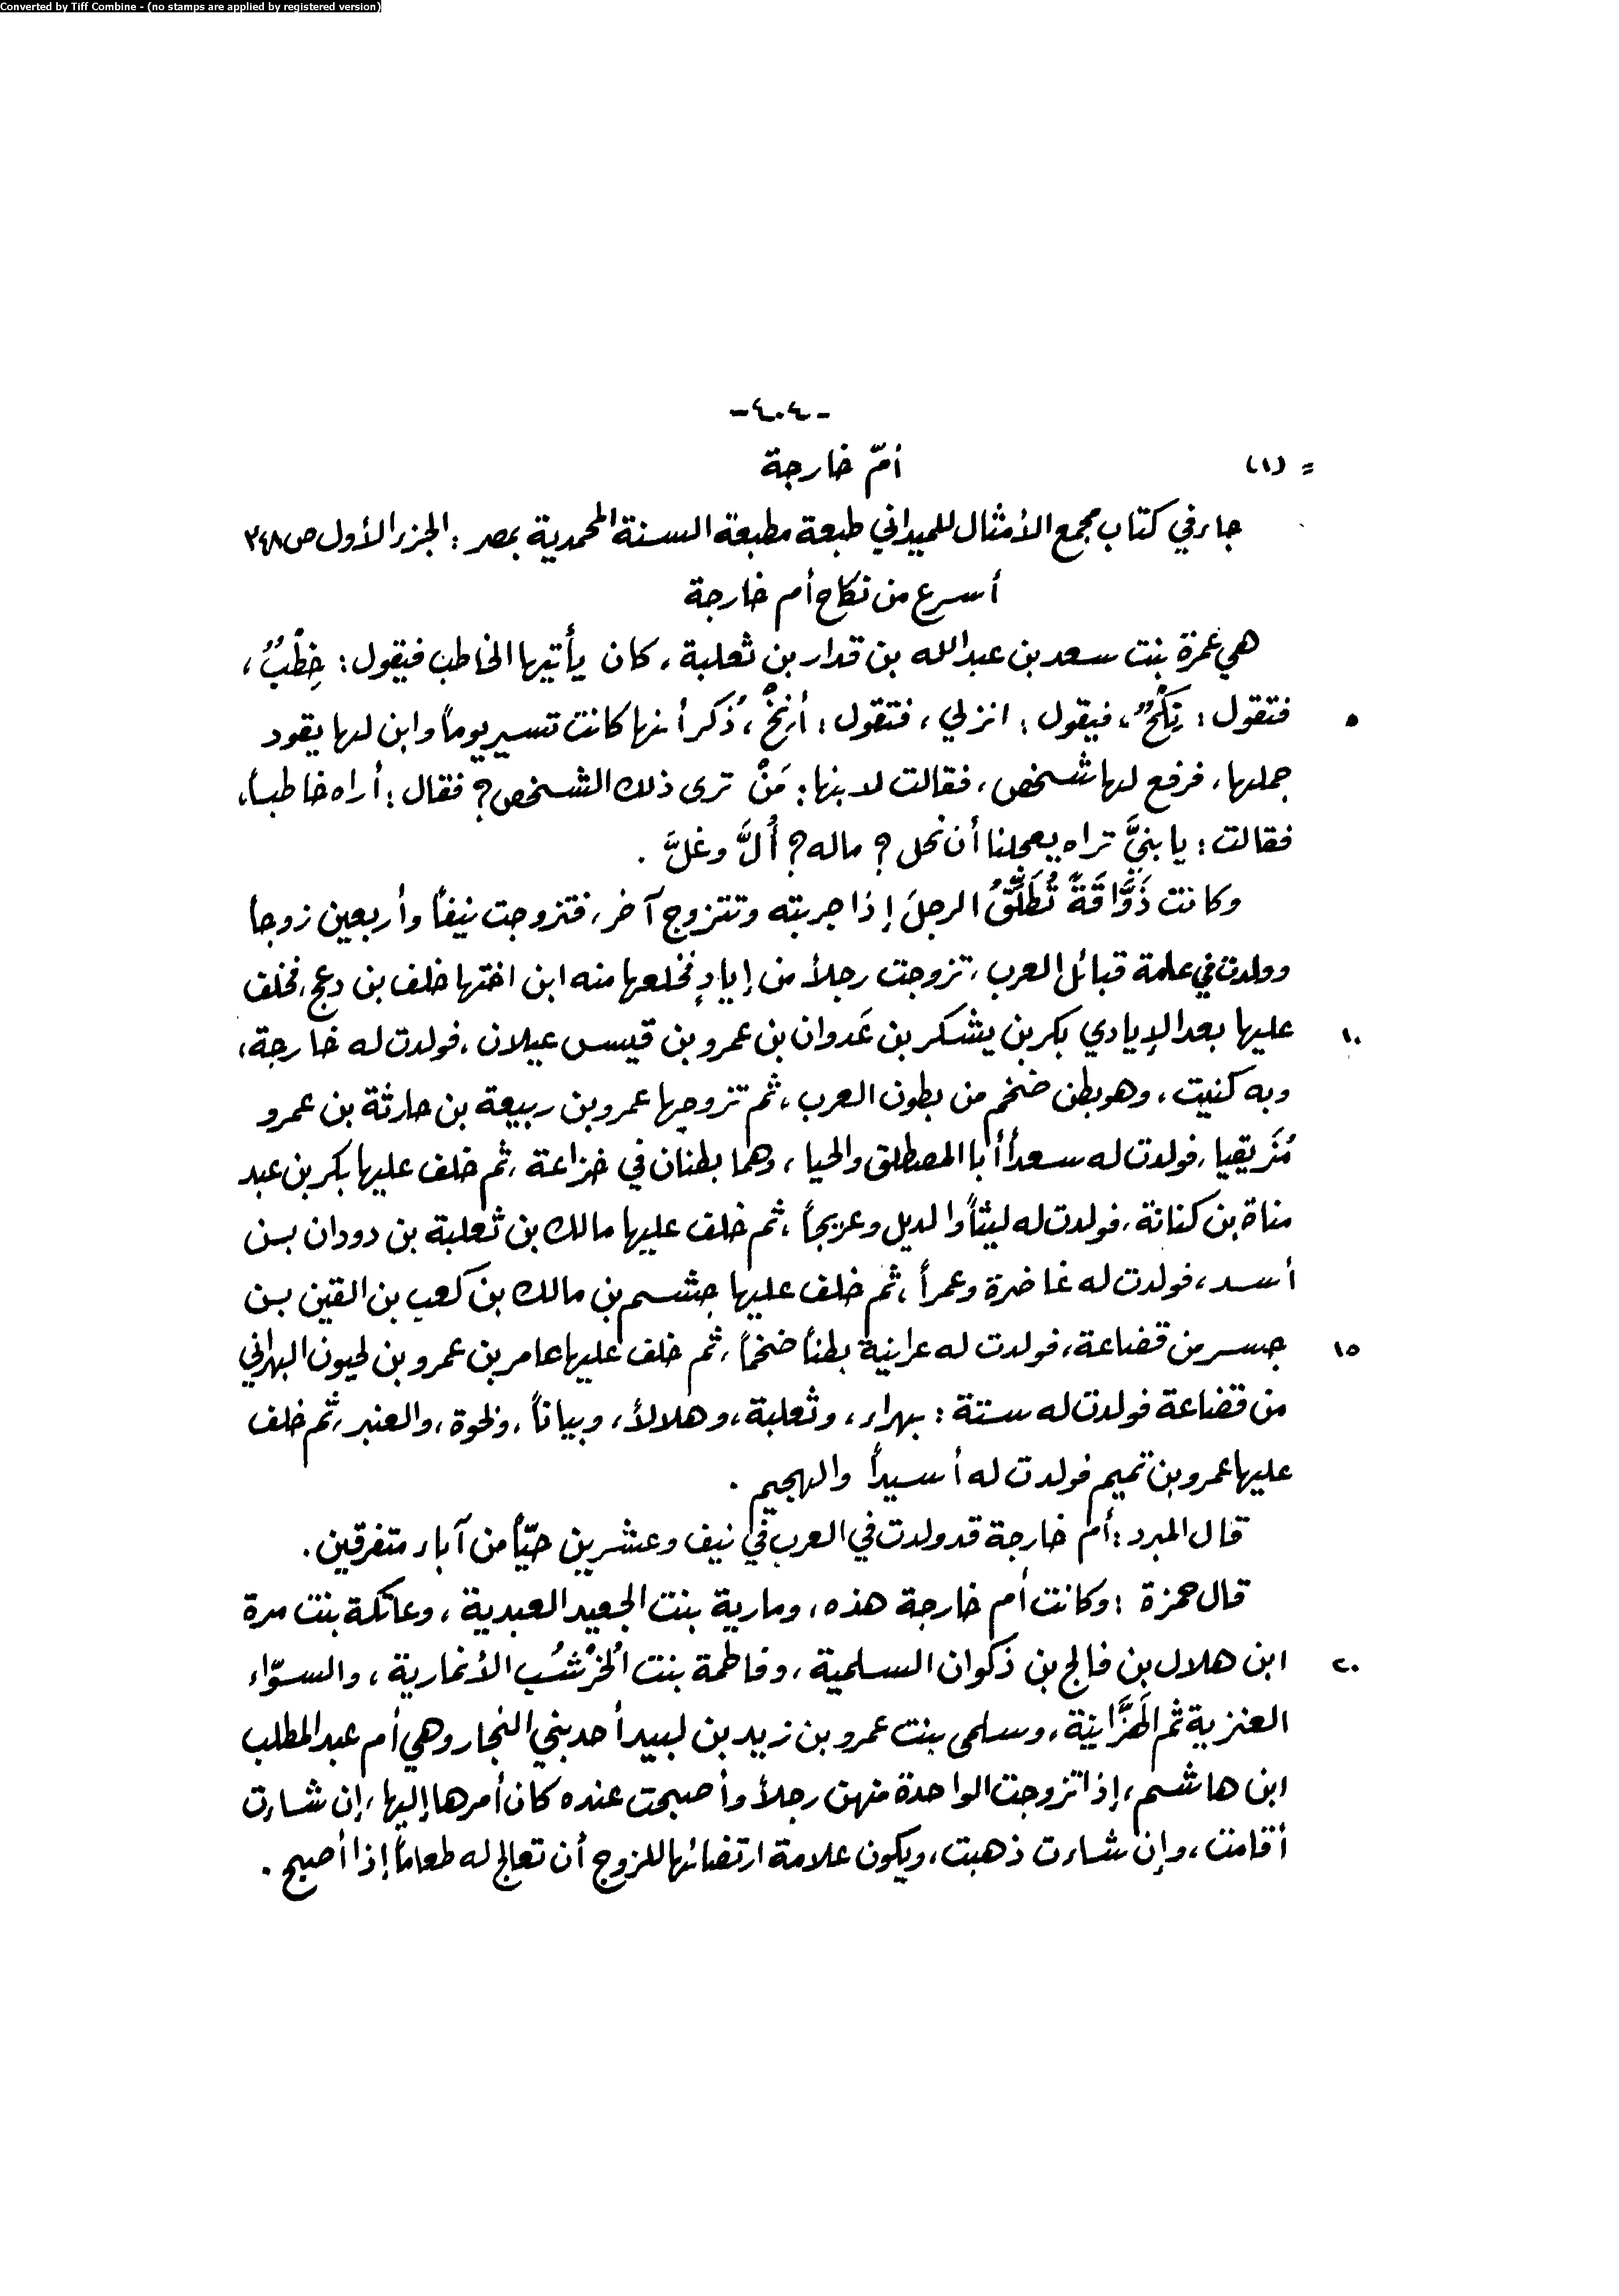 Converted by Tiff Combine - (no stamps are applied by registered version)
-٤٠٤-
= (١) أمّ خارجة
جاء في كتاب مجمع الأمثال للميداني طبعة مطبعة السنة المحمدية بمصر : الجزء الأول ص ٣٤٨
أسرع من نكاح أم خارجة
هي عمرة بنت سعد بن عبدالله بن قدار بن ثعلبة ، كان يأتيها الخاطب فيقول : خِطْبٌ ،
٥ فتقول : نِكْحٌ ، فيقول : انزلي ، فتقول : أنِخْ ، ذُكر أنها كانت تسير يوماً وابن لها يقود
جملها ، فرفع لها شخص ، فقالت لابنها : مَنْ ترى ذلك الشخص ؟ فقال : أراه خاطباً ،
فقالت : يا بنيَّ تراه يعجلنا أن نحل ؟ ماله ؟ أُلَّ وغلَّ .
وكانت ذَوَّاقَةً تُطَلِّقُ الرجلَ إذا جربته وتتزوج آخر ، فتزوجت نيفاً وأربعين زوجاً
وولدت في عامة قبائل العرب ، تزوجت رجلاً من إيادٍ فخلعها منه ابن اختها خلف بن دعج ، فخلف
١٠ عليها بعد الإيادي بكر بن يشكر بن عَدوان بن عمرو بن قيس عيلان ، فولدت له خارجة ،
وبه كنيت ، وهو بطن ضخم من بطون العرب ، ثم تزوجها عمرو بن ربيعة بن حارثة بن عمرو
مُزَيقيا ، فولدت له سعداً أبا المصطلق والحيا ، وهما بطنان في خزاعة ، ثم خلف عليها بكر بن عبد
مناة بن كنانة ، فولدت له ليثاً والديل وعريجاً ، ثم خلف عليها مالك بن ثعلبة بن دودان بـن
أسد ، فولدت له غاضرة وعمراً ، ثم خلف عليها جشم بن مالك بن كعب بن القين بـن
١٥ جسر من قضاعة ، فولدت له عرانية بطناً ضخماً ، ثم خلف عليها عامر بن عمرو بن لحيون البهراني
من قضاعة فولدت له ستة : بهراء ، وثعلبة ، وهلالاً ، وبياناً ، ولخوة ، والعنبر ، ثم خلف
عليها عمرو بن تميم فولدت له أسيداً والهجيم .
قال المبرد : أم خارجة قد ولدت في العرب في نيف وعشرين حيّاً من آباء متفرقين .
قال حمزة : وكانت أم خارجة هذه ، ومارية بنت الجعيد العبدية ، وعاتكة بنت مرة
٢٠ ابن هلال بن فالج بن ذكوان السلمية ، وفاطمة بنت الخُرْشُب الأنمارية ، والسوّاء
العنزية ثم الهَزَّانية ، وسلمى بنت عمرو بن زيد بن لبيد أحد بني النجار وهي أم عبد المطلب
ابن هاشم ، إذا تزوجت الواحدة منهن رجلاً وأصبحت عنده كان أمرها إليها ، إن شاءت
أقامت ، وإن شاءت ذهبت ، ويكون علامة ارتضائها للزوج أن تعالج له طعاماً إذا أصبح .